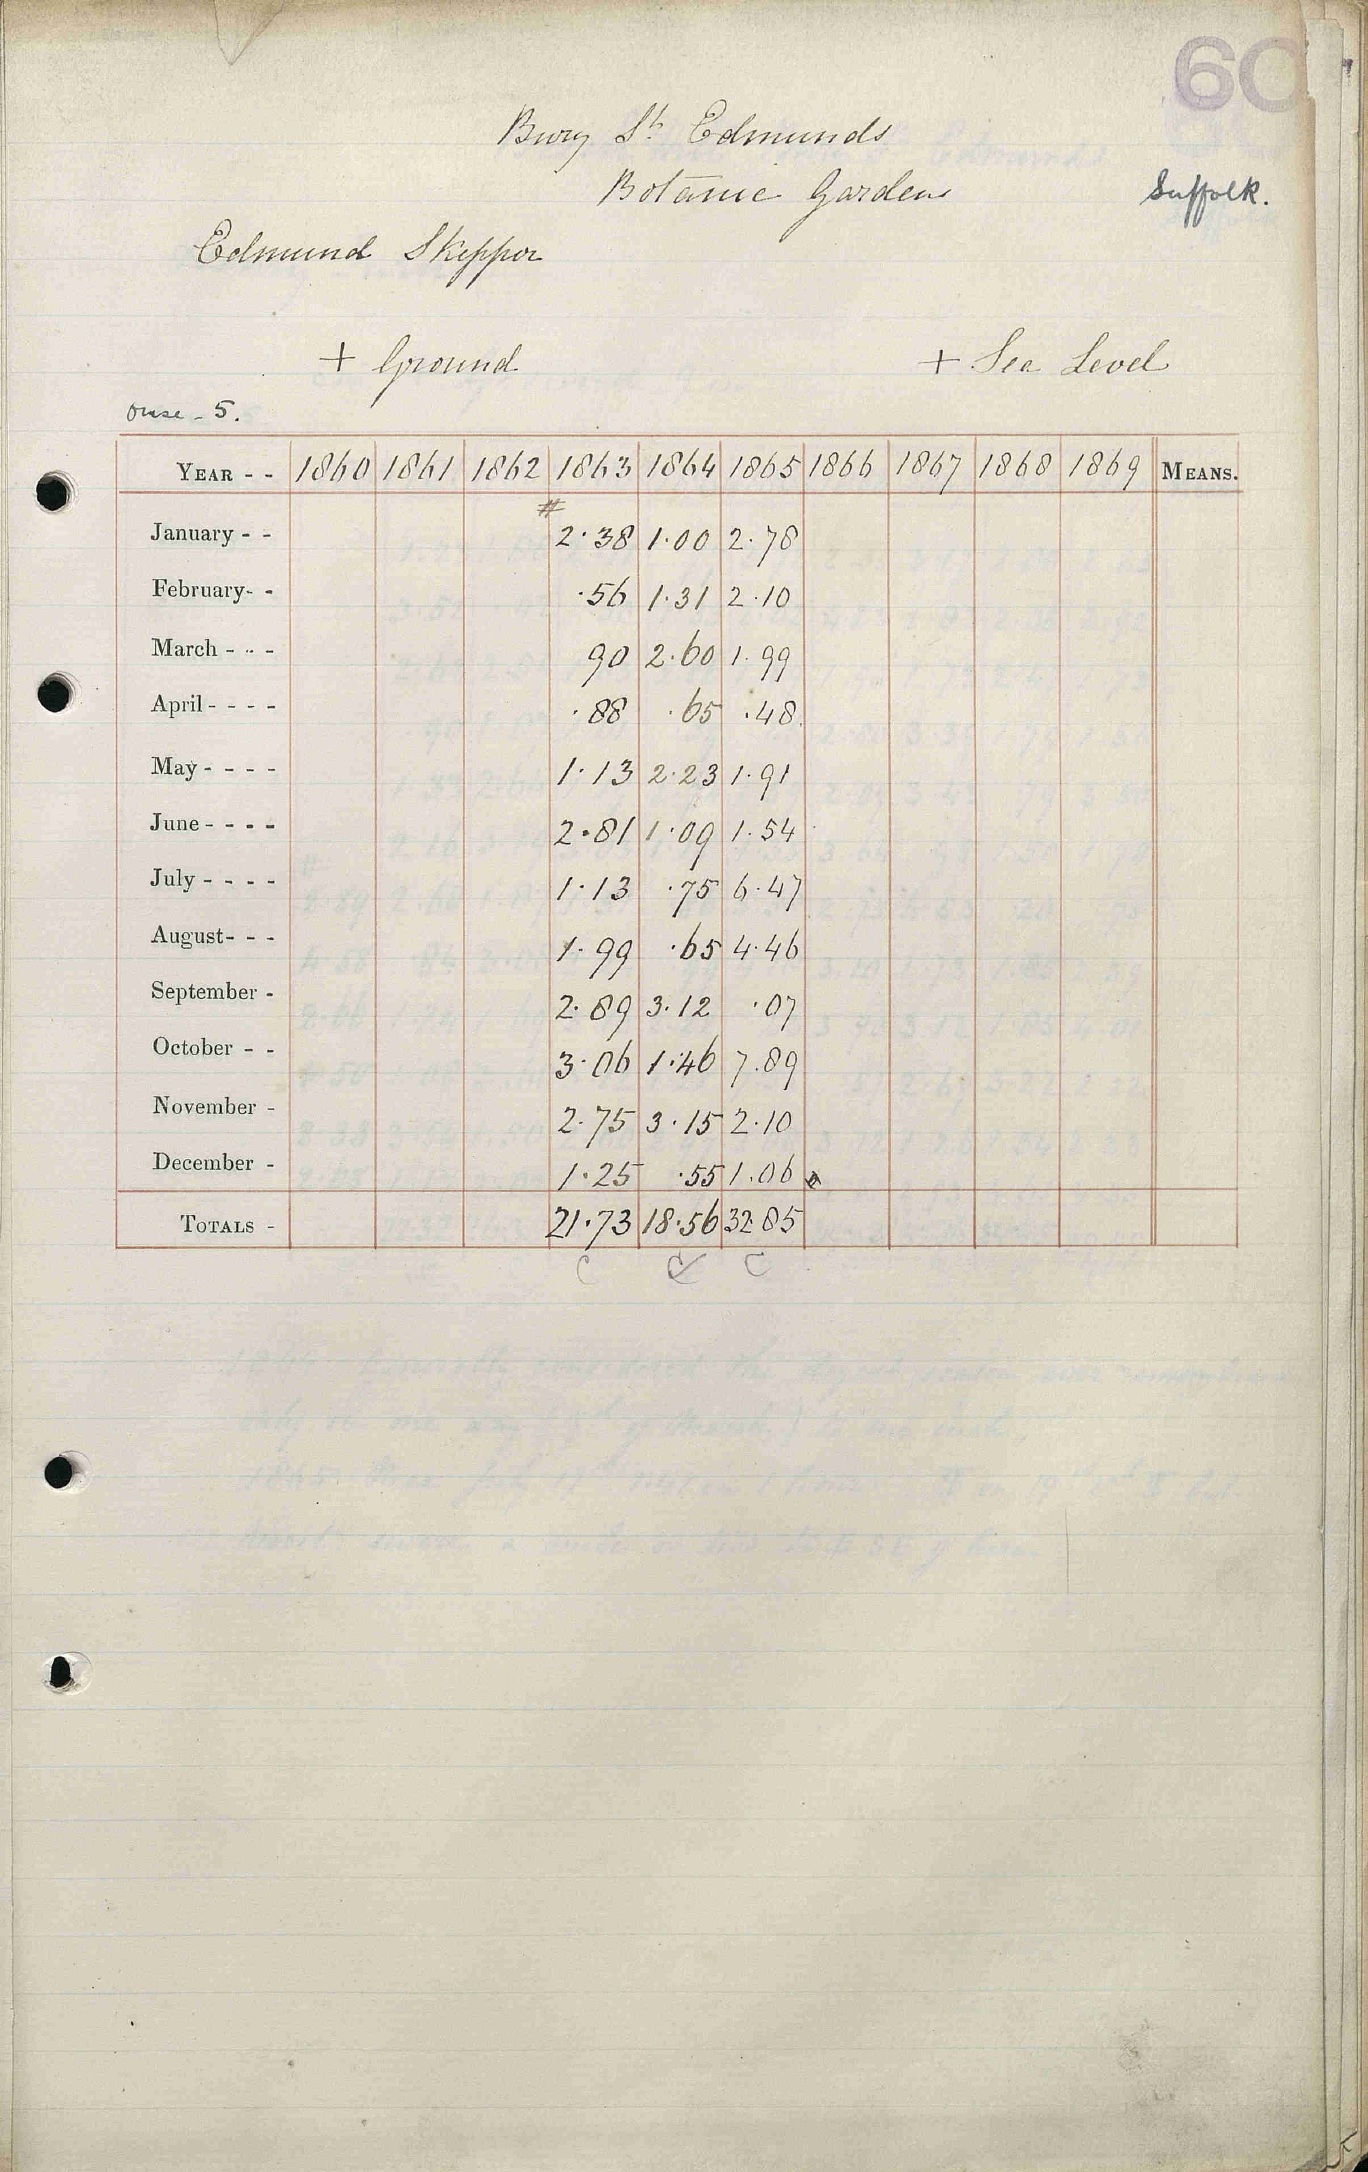 60
Bury St Edmunds
Botanic Gardens
Suffolk.
Edmund Skepper
+ Ground + Sea Level
Ouse - 5.
YEAR - - 1860 1861 1862 1863 1864 1865 1866 1867 1868 1869 MEANS.
#
January - - 2.38 1.00 2.78
February- - .56 1.31 2.10
March - - - 90 2.60 1.99
April - - - - .88 .65 .48
May - - - - 1.13 2.23 1.91
June - - - - 2.81 1.09 1.54
July - - - - 1.13 .75 6.47
August- - - 1.99 .65 4.46
September - 2.89 3.12 .07
October - - 3.06 1.46 7.89
November - 2.75 3.15 2.10
December - 1.25 .55 1.06
TOTALS - 21.73 18.56 32.85
C C C